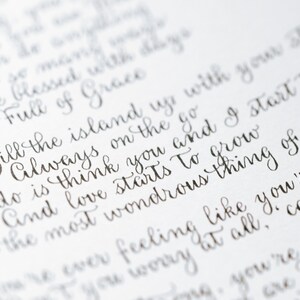 do anything
so many ways
blessed with days
Full of Grace
ill the island up with your s
Always on the go
do is think you and I start
And love starts to grow
the most wondrous thing of
're ever feeling like you'
t you worry at all.
you're